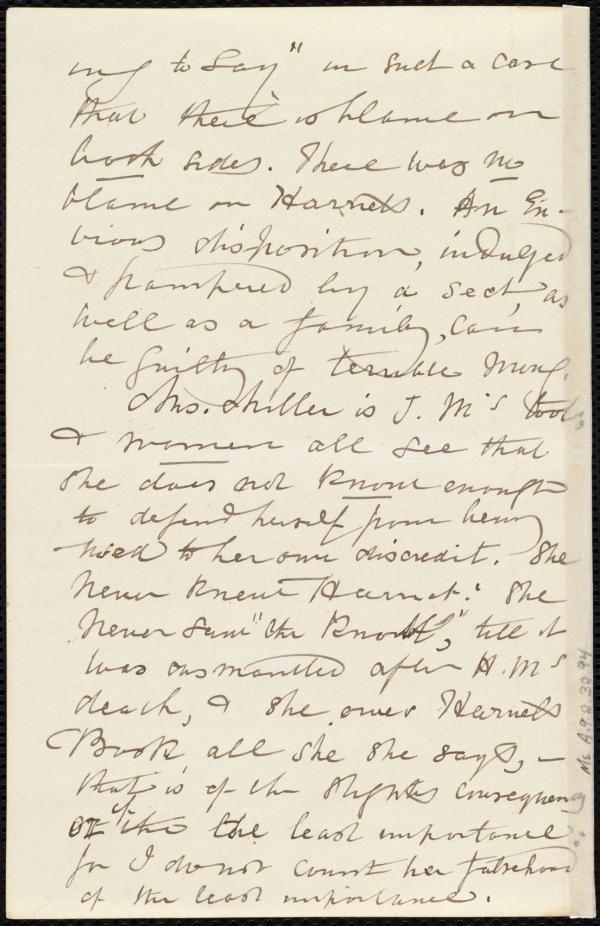 ing to say" in such a case
that there is blame on
both sides. There was no
blame on Harriets. An En-
vious disposition, indulged
& pampered by a sect, as
well as a family, can
be guilty of terrible wrong.
Mrs. Miller is J. M's tool,
& women all see that
she does not know enough
to defend herself from being
used to her own discredit. She
never knew Harriet. She
never saw "the Knoll," till it
was dismantled after H. M's
death, & she owes Harriets
Book, all she she says, —
that is of the slightest consequence
or if the the least importance
for I do not count her falsehood
of the least importance.
Ms A.9.2.32.94